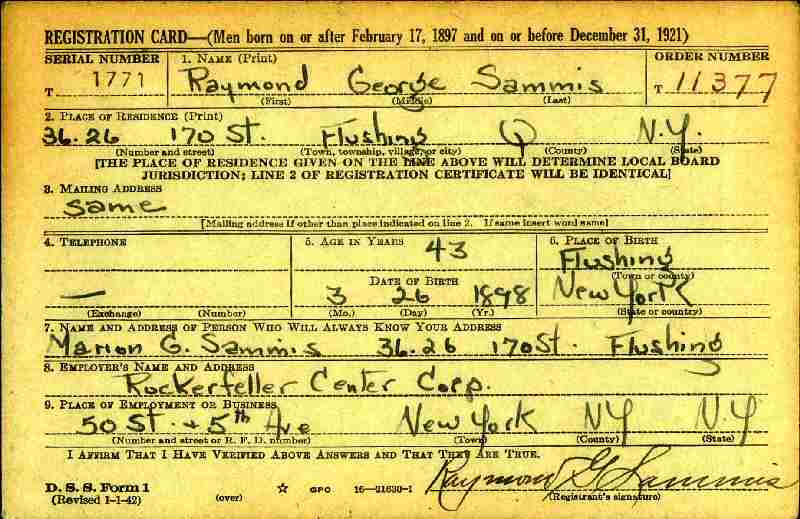 REGISTRATION CARD—(Men born on or after February 17, 1897 and on or before December 31, 1921)
SERIAL NUMBER 1. NAME (Print) ORDER NUMBER
T 1771 Raymond George Sammis T 11377
(First) (Middle) (Last)
2. PLACE OF RESIDENCE (Print)
36.26 170 St. Flushing Q N.Y.
(Number and street) (Town, township, village, or city) (County) (State)
[THE PLACE OF RESIDENCE GIVEN ON THE LINE ABOVE WILL DETERMINE LOCAL BOARD
JURISDICTION; LINE 2 OF REGISTRATION CERTIFICATE WILL BE IDENTICAL]
3. MAILING ADDRESS
Same
[Mailing address if other than place indicated on line 2. If same insert word same]
4. TELEPHONE 5. AGE IN YEARS 43 6. PLACE OF BIRTH
Flushing
DATE OF BIRTH (Town or county)
— 3 26 1898 New York
(Exchange) (Number) (Mo.) (Day) (Yr.) (State or country)
7. NAME AND ADDRESS OF PERSON WHO WILL ALWAYS KNOW YOUR ADDRESS
Marion G. Sammis 36.26 170 St. Flushing
8. EMPLOYER'S NAME AND ADDRESS
Rockerfeller Center Corp.
9. PLACE OF EMPLOYMENT OR BUSINESS
50 St. + 5th Ave New York NY N.Y
(Number and street or R. F. D. number) (Town) (County) (State)
I AFFIRM THAT I HAVE VERIFIED ABOVE ANSWERS AND THAT THEY ARE TRUE.
D. S. S. Form 1 Raymond G Sammis
(Revised 1-1-42) (over) ☆ GPO 16—21630-1 (Registrant's signature)